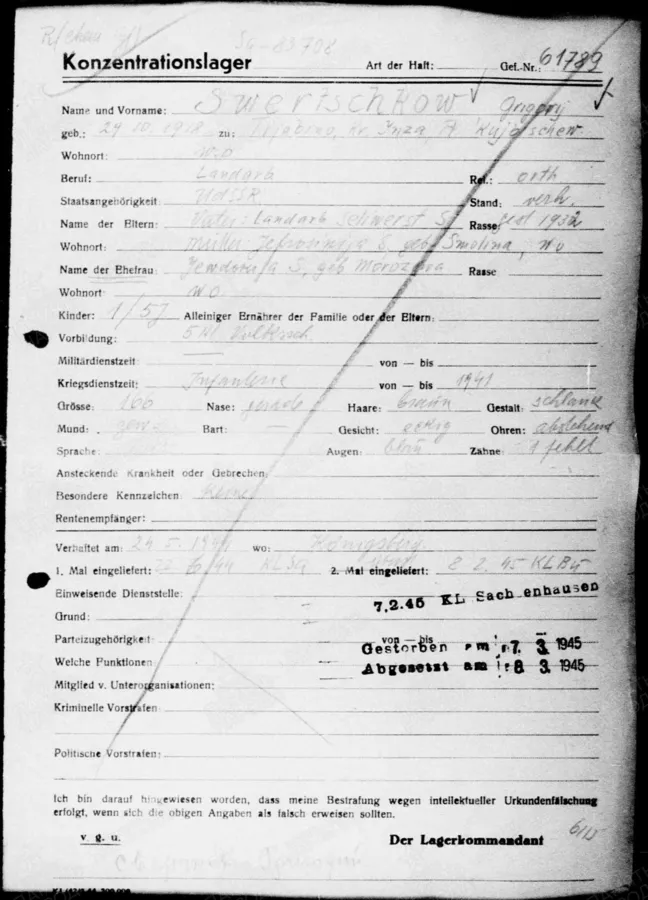 Sa-83708
Konzentrationslager Art der Haft: Gef.-Nr.: 61789
Name und Vorname: Swertschkow Grigorij
geb.: 24 10. zu: Inza,
Wohnort: wo
Beruf: Landarb Rel.: orth
Staatsangehörigkeit: UdSSR Stand: verh.
Name der Eltern: Vater: Landarb Rasse: gest 1932
Wohnort: Mutter S. geb Smolina, wo
Name der Ehefrau: Jewdokija S, geb Morozowa Rasse
Wohnort: wo
Kinder: 1/5J Alleiniger Ernährer der Familie oder der Eltern:
Vorbildung: 5 Kl Volkssch
Militärdienstzeit: von — bis
Kriegsdienstzeit: Infanterie von — bis 1941
Grösse: 166 Nase: gerade Haare: braun Gestalt: schlank
Mund: gew. Bart: — Gesicht: eckig Ohren: abstehend
Sprache: Augen: blau Zähne: 1 fehlt
Ansteckende Krankheit oder Gebrechen:
Besondere Kennzeichen: keine
Rentenempfänger:
Verhaftet am: 24 5. 1944 wo: Königsberg
1. Mal eingeliefert: 22 6/44 KLSa 2. Mal eingeliefert: 8 2. 45 KLBu
Einweisende Dienststelle: 7.2.45 KL Sachsenhausen
Grund:
Parteizugehörigkeit: von — bis
Gestorben am 7. 3. 1945
Welche Funktionen: Abgesetzt am 8 3. 1945
Mitglied v. Unterorganisationen:
Kriminelle Vorstrafen:
Politische Vorstrafen:
Ich bin darauf hingewiesen worden, dass meine Bestrafung wegen intellektueller Urkundenfälschung
erfolgt, wenn sich die obigen Angaben als falsch erweisen sollten.
v. g. u. Der Lagerkommandant